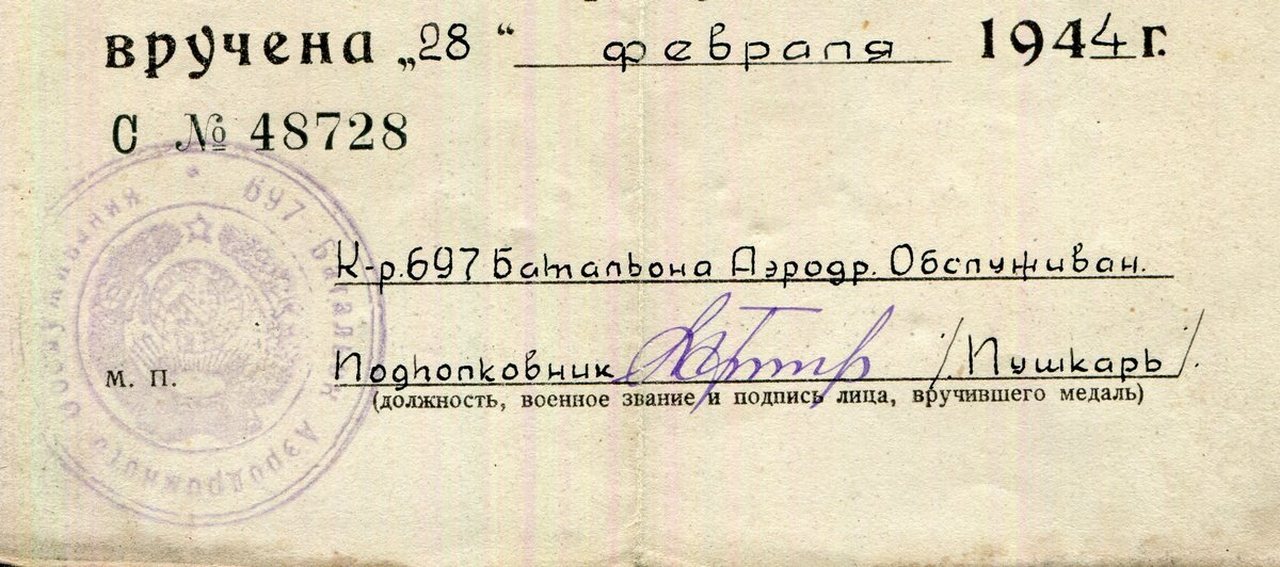 вручена „28“ февраля 1944 г.
С № 48728
К-р. 697 Батальона Аэродр. Обслуживан.
М. П.
Подполковник /Пушкарь/.
(должность, военное звание и подпись лица, вручившего медаль)
697 Батальон Аэродромного Обслуживания